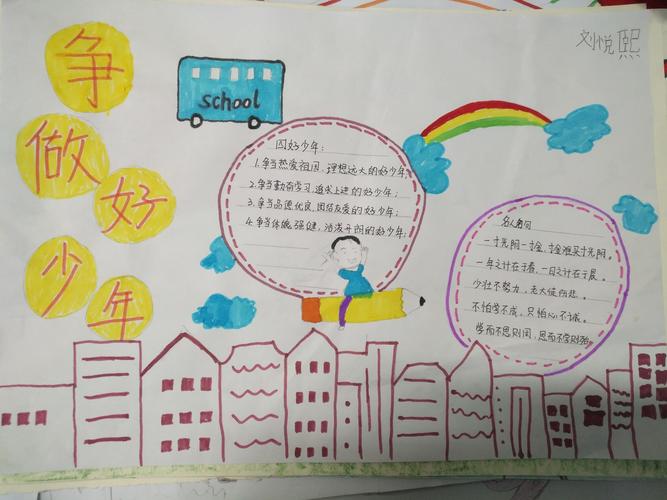 争做好少年
刘悦熙
school
四好少年：
1.争当热爱祖国、理想远大的好少年；
2.争当勤奋学习、追求上进的好少年；
3.争当品德优良、团结友爱的好少年；
4.争当体魄强健、活泼开朗的好少年；
名人名句
一寸光阴一寸金，寸金难买寸光阴。
一年之计在于春，一日之计在于晨。
少壮不努力，老大徒伤悲。
不怕学不成，只怕心不诚。
学而不思则罔，思而不学则殆。